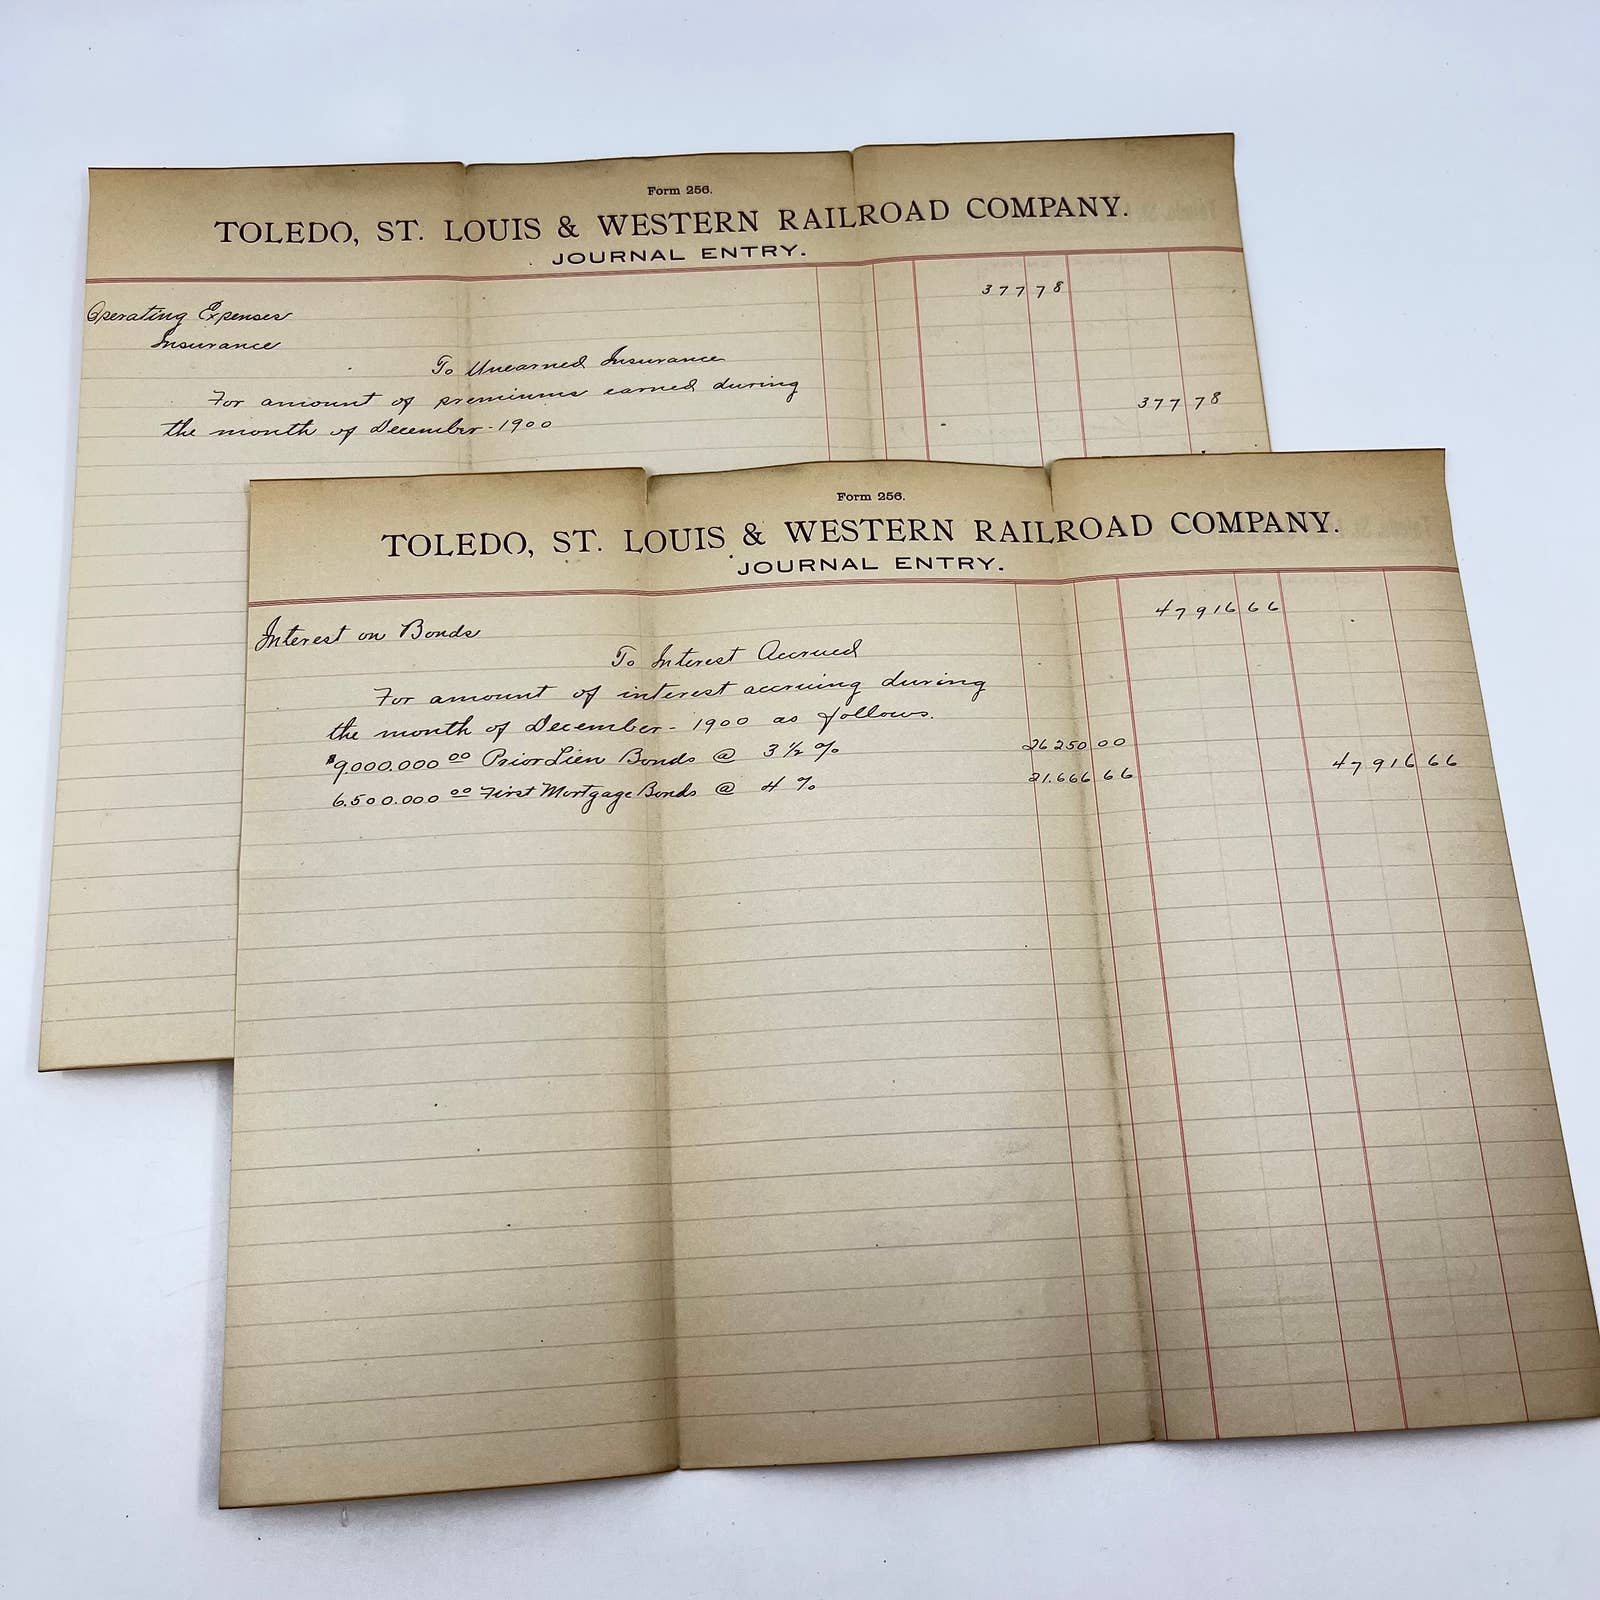 Form 256.
TOLEDO, ST. LOUIS & WESTERN RAILROAD COMPANY.
JOURNAL ENTRY.
377 78
Operating Expenses
Insurance
To Unearned Insurance
For amount of premiums earned during
377 78
the month of December - 1900
Form 256.
TOLEDO, ST. LOUIS & WESTERN RAILROAD COMPANY.
JOURNAL ENTRY.
47916 66
Interest on Bonds
To Interest Accrued
For amount of interest accruing during
the month of December - 1900 as follows.
$9.000.000 00 Prior Lien Bonds @ 3 1/2 % 26 250 00
6.500.000 00 First Mortgage Bonds @ 4 % 21.666 66 47916 66